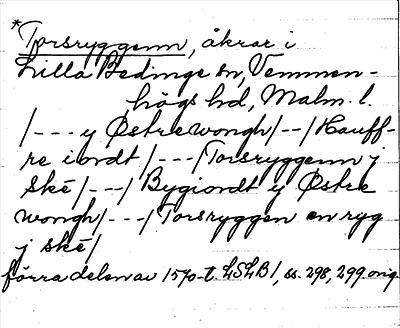 *Torsryggenn, åkrar i
Lilla Bedinge sn, Vemmen-
högs hd, Malm. l.
/--- y Østre wongh/--/Hauff-
re iordt/---/Torsryggenn j
skë/---/ Bygiordt y Østre
wongh/---/Torsryggen en ryg
j skë/
förra delen av 1570-t. LSLB 1, ss. 298, 299 orig.